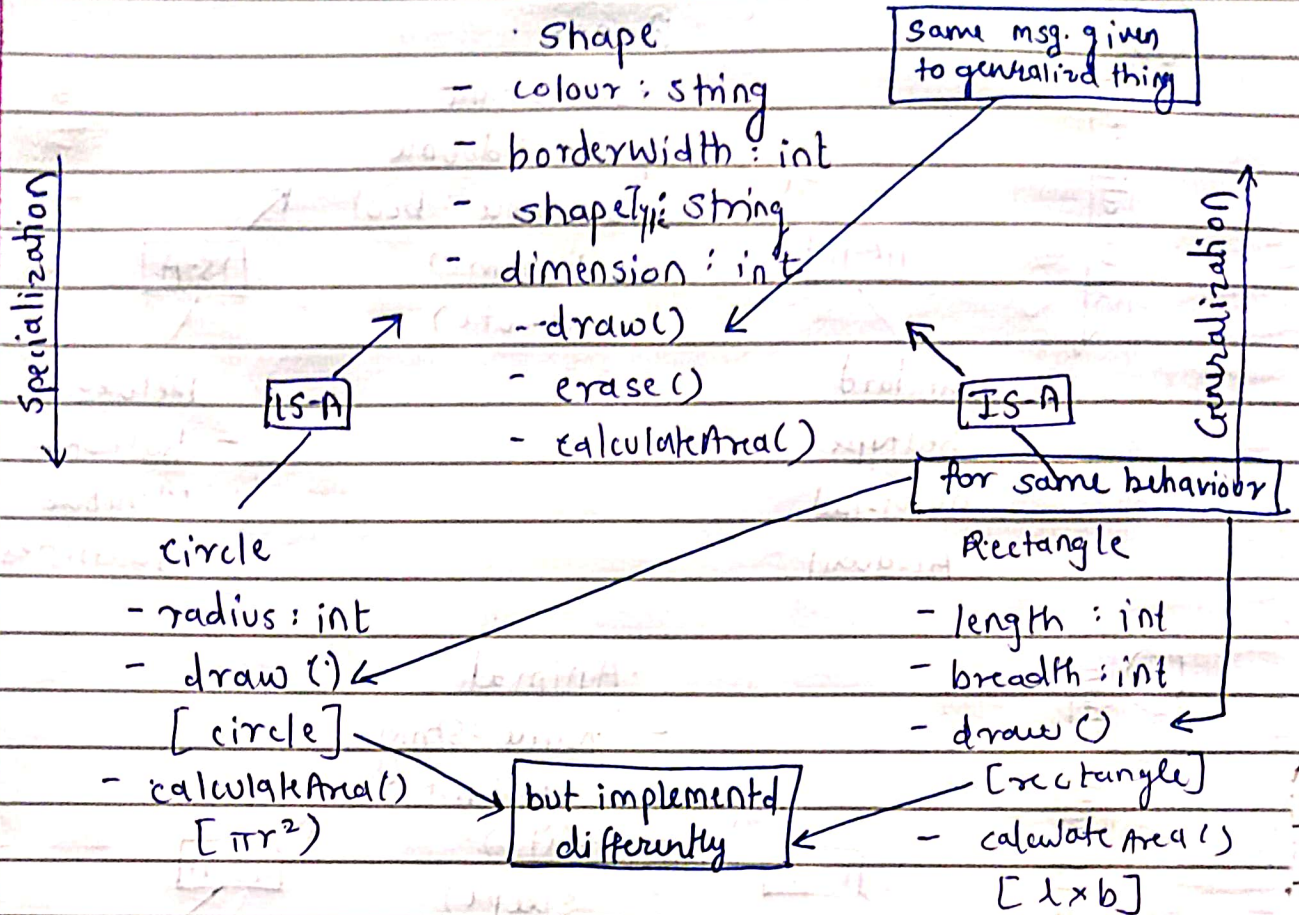 Shape
- colour : string
- borderWidth : int
- shapeType: string
- dimension : int
- draw()
- erase()
- calculateArea()
Same msg. given
to generalizd thing
Specialization
Generalization
IS-A
IS-A
for same behaviour
Circle
- radius : int
- draw ()
[circle]
- calculateArea()
[πr²)
Rectangle
- length : int
- breadth : int
- draw ()
[rectangle]
- calculate Area ()
[l×b]
but implementd
differently